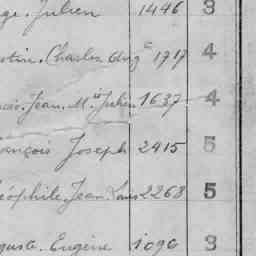 ge. Julien 1446 3
Charles Aug 1717 4
Jean. M. Julien 1637 4
ançois Joseph 2415 5
éophile Jean Louis 2268 5
guste. Eugène 1090 3